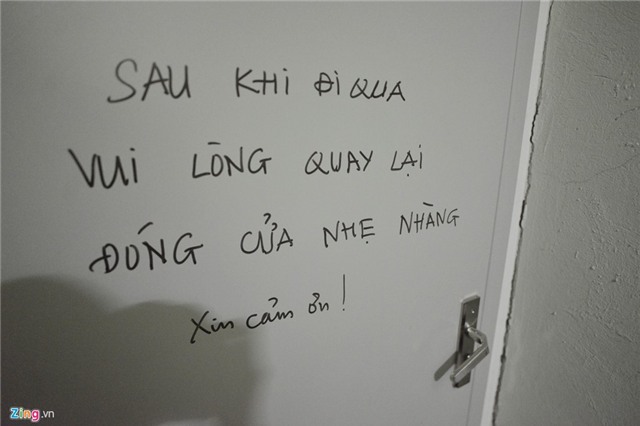 SAU KHI ĐI QUA
VUI LÒNG QUAY LẠI
ĐÓNG CỬA NHẸ NHÀNG
Xin cảm ơn!
Zing.vn